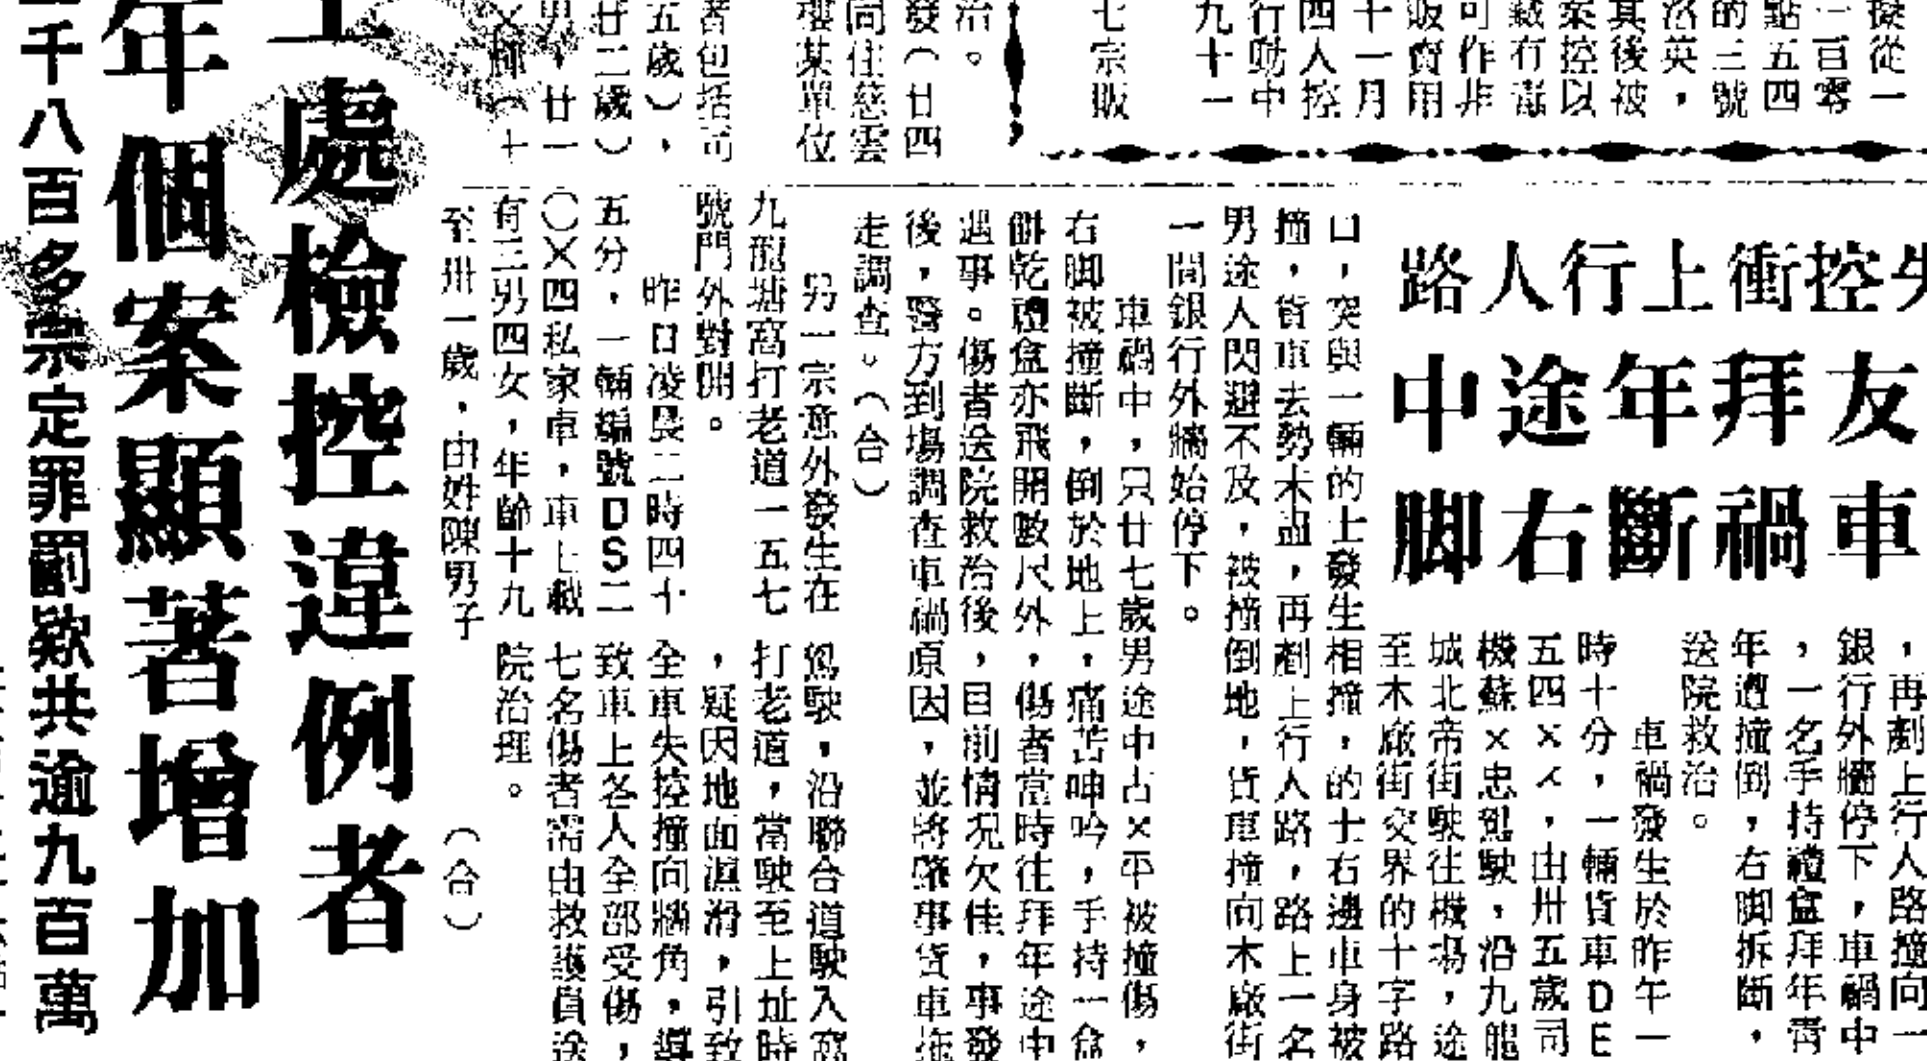 擬從一
二百零
點五四
的三號
洛英，
其後被
案控以
藏有毒
可作非
販賣用
十一月
四人控
行動中
九十一
七宗販
治。
發（廿四
同住慈雲
樓某單位
者包括司
五歲），
廿二歲）
男，廿一
×輝（十
失控衝上行人路
友拜年途中
車禍斷右脚
，再剷上行人路撞向一
銀行外牆停下，車禍中
，一名手持禮盒拜年青
年遭撞倒，右脚拆斷，
送院救治。
車禍發生於昨午一
時十分，一輛貨車DE
五四××，由卅五歲司
機蘇×忠駕駛，沿九龍
城北帝街駛往機場，途
至木廠街交界的十字路
口，突與一輛的士發生相撞，的士右邊車身被
撞，貨車去勢未盡，再剷上行人路，路上一名
男途人閃避不及，被撞倒地，貨車撞向木廠街
一間銀行外牆始停下。
車禍中，只廿七歲男途中占×平被撞傷，
右脚被撞斷，倒於地上，痛苦呻吟，手持一盒
餅乾禮盒亦飛開數尺外，傷者當時往拜年途中
遇事。傷者送院救治後，目前情況欠佳，事發
後，警方到場調查車禍原因，並將肇事貨車拖
走調查。（合）
另一宗意外發生在
九龍塘窩打老道一五七
號門外對開。
昨日凌晨二時四十
五分，一輛編號DS二
〇×四私家車，車上載
有三男四女，年齡十九
至卅一歲，由姓陳男子
駕駛，沿聯合道駛入窩
打老道，當駛至上址時
，疑因地面濕滑，引致
全車失控撞向牆角，導
致車上各人全部受傷，
七名傷者需由救護員送
院治理。
（合）
處檢控違例者
年個案顯著增加
千八百多宗定罪罰欵共逾九百萬